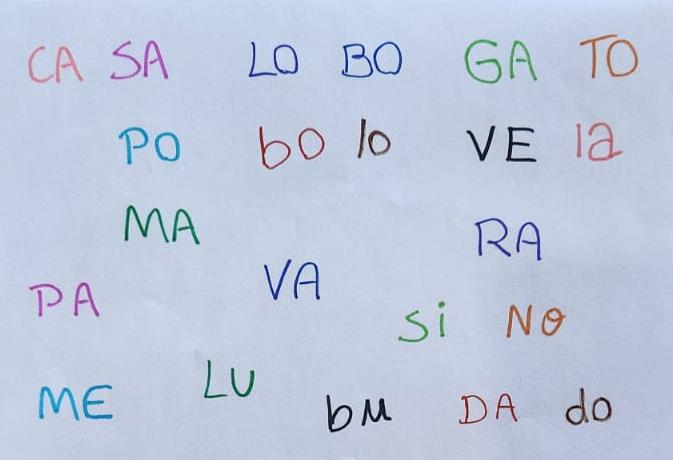 CA SA LO BO GA TO
PO bo lo VE la
MA RA
VA
PA Si NO
LU
ME bu DA do